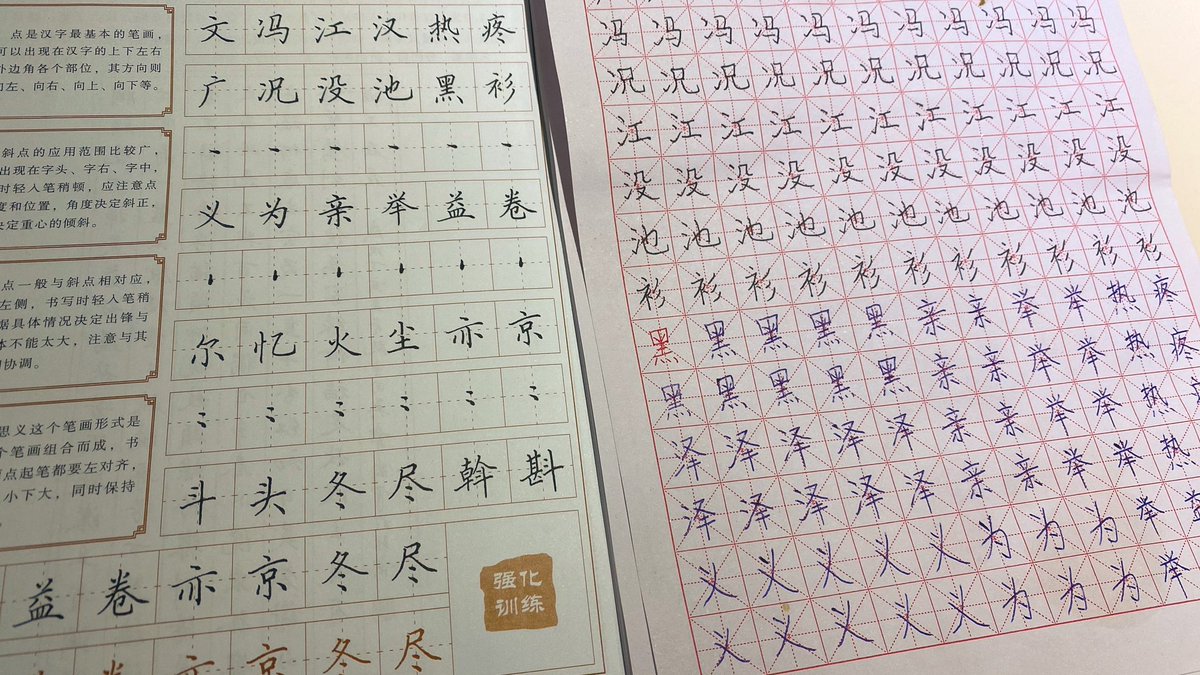 点是汉字最基本的笔画，
可以出现在汉字的上下左右
外边角各个部位，其方向则
向左、向右、向上、向下等。
斜点的应用范围比较广，
出现在字头、字右、字中，
时轻入笔稍顿，应注意点
度和位置，角度决定斜正，
决定重心的倾斜。
点一般与斜点相对应，
左侧，书写时轻入笔稍
据具体情况决定出锋与
体不能太大，注意与其
协调。
思义这个笔画形式是
个笔画组合而成，书
点起笔都要左对齐，
小下大，同时保持
文 冯 江 汉 热 疼
广 况 没 池 黑 衫
义 为 亲 举 益 卷
尔 忆 火 尘 亦 京
斗 头 冬 尽 斡 斟
益 卷 亦 京 冬 尽
亦 京 冬 尽
强化
训练
冯 冯 冯 冯 冯 冯 冯 冯 冯 冯
况 况 况 况 况 况 况 况 况 况
江 江 江 江 江 江 江 江 江 江
没 没 没 没 没 没 没 没 没 没
池 池 池 池 池 池 池 池 池 池
衫 衫 衫 衫 衫 衫 衫 衫 衫 衫
黑 黑 黑 黑 黑 亲 亲 举 举 热 疼
黑 黑 黑 黑 黑 亲 亲 举 举 热 疼
泽 泽 泽 泽 泽 亲 亲 举 举 热
泽 泽 泽 泽 泽 亲 亲 举 举 热
义 义 义 义 义 为 为 为 举 益
义 义 义 义 义 为 为 为 举